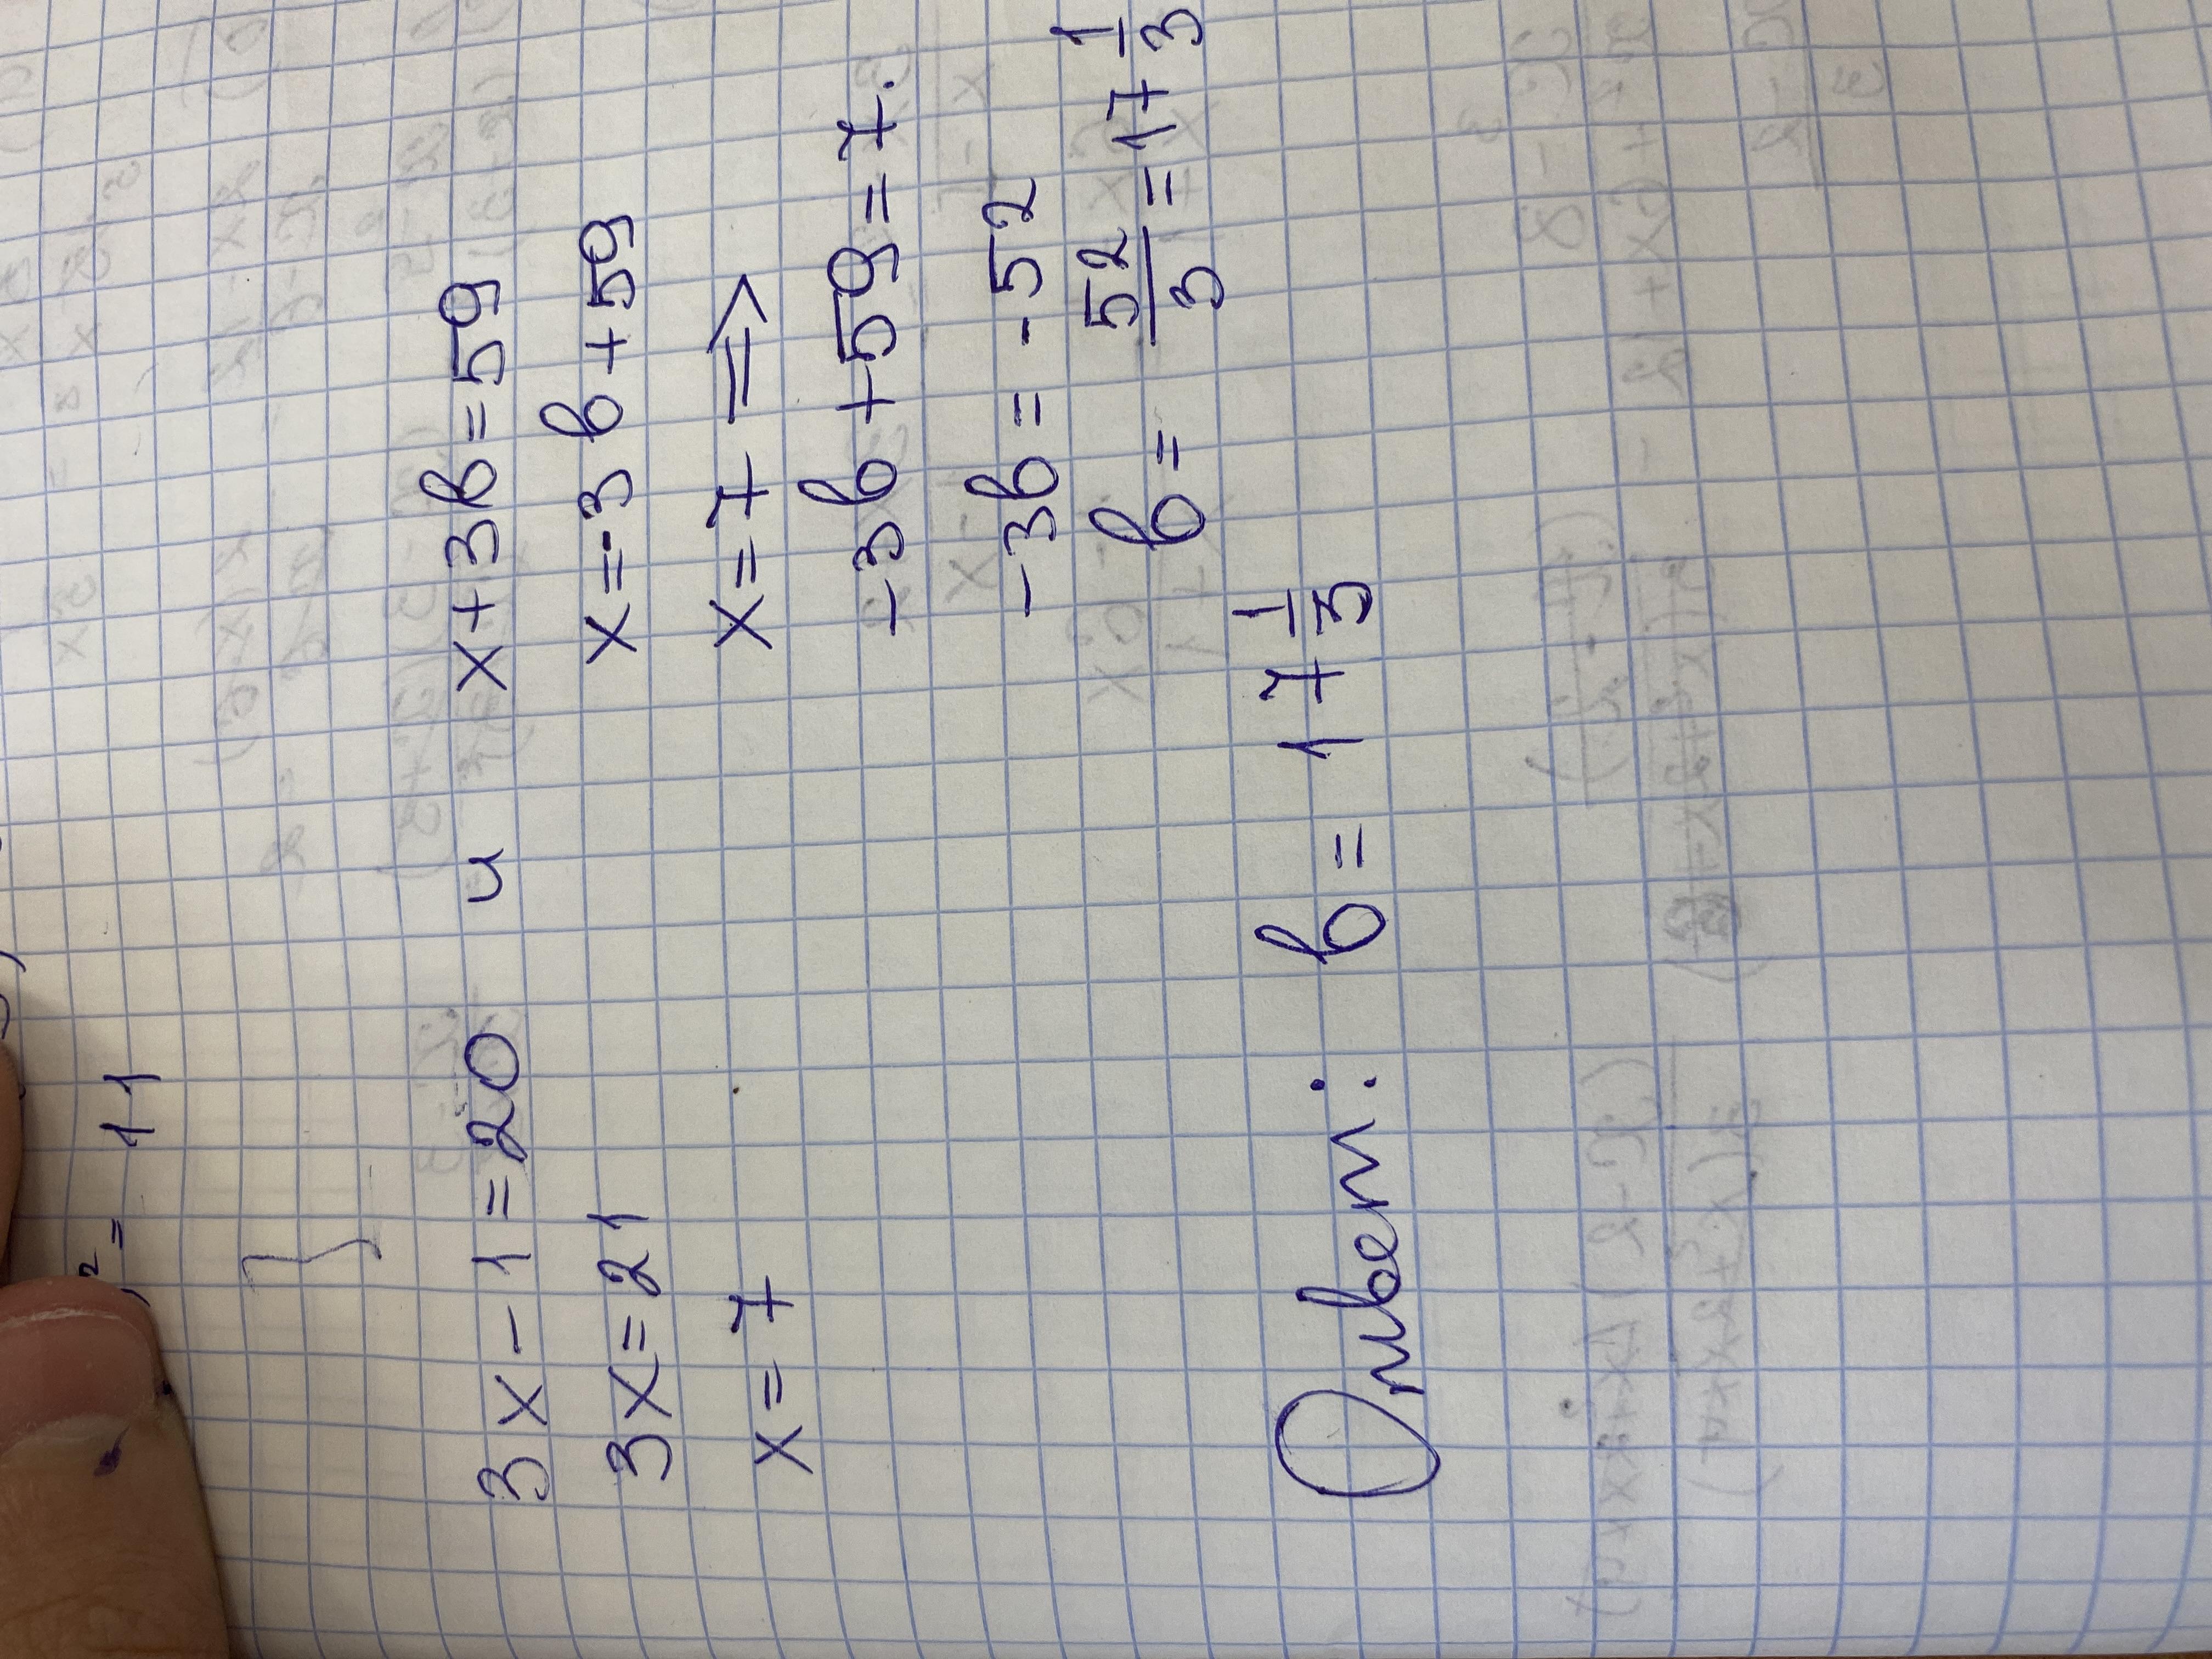 ² = 11
3x - 1 = 20 и x + 3в = 59
3x = 21 x = -3в + 59
x = 7 x = 7 ⟹
-3в + 59 = 7.
-3в = -52
в = 52/3 = 17 1/3
Ответ: в = 17 1/3